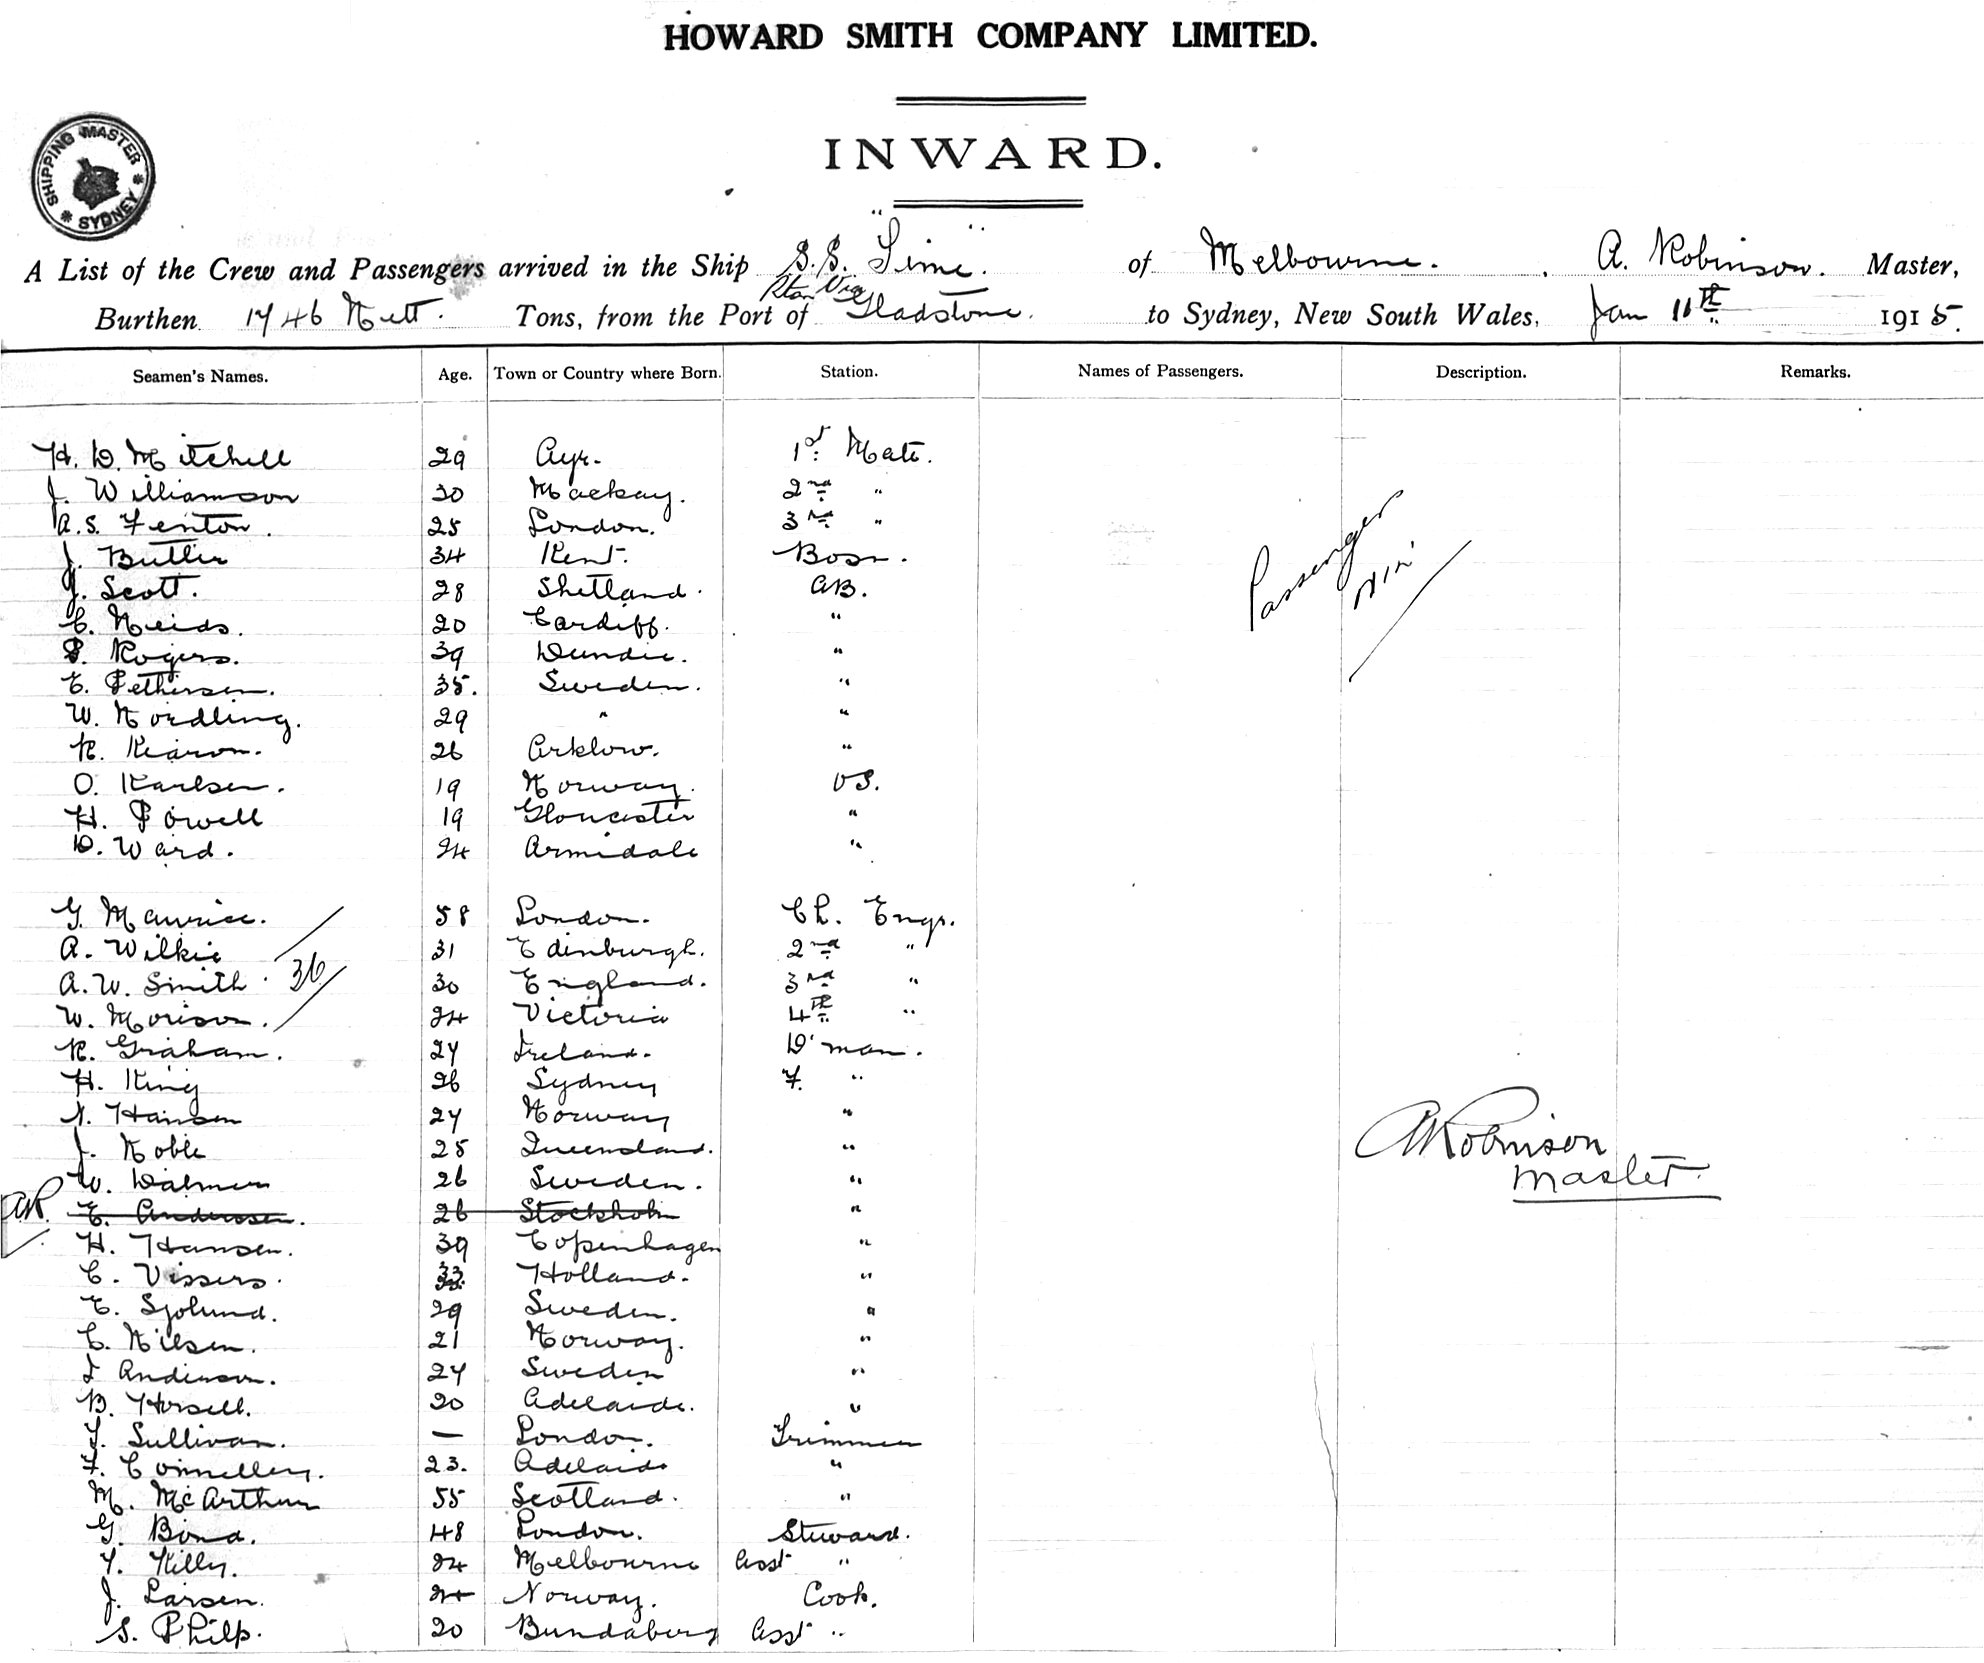 HOWARD SMITH COMPANY LIMITED.
INWARD.
SHIPPING MASTER SYDNEY
A List of the Crew and Passengers arrived in the Ship S.S. "Time". of Melbourne. A. Robinson. Master,
Burthen 1746 Nett. Tons, from the Port of Gladstone. to Sydney, New South Wales, Jan 11th 1915.
Seamen's Names. Age. Town or Country where Born. Station. Names of Passengers. Description. Remarks.
H. D. Mitchell 29 Ayr. 1st Mate.
J. Williamson 30 Mackay. 2nd "
A. S. Fenton. 25 London. 3rd "
J. Butler 34 Kent. Bosn.
J. Scott. 28 Shetland. AB.
C. Neids. 20 Cardiff. "
P. Rogers. 39 Dundee. "
E. Pethersen. 35. Sweden. "
W. Nordling. 29 " "
R. Kearon. 26 Arklow. "
O. Karlsen. 19 Norway. OS.
H. Powell 19 Gloucester "
D. Ward. 24 Armidale "
Passenger
Nil
G. Maurice. 58 London. Ch. Engr.
A. Wilkie 31 Edinburgh. 2nd "
A. W. Smith 36 30 England. 3rd "
W. Morison. 24 Victoria 4th "
R. Graham. 27 Ireland. D'man.
H. King 26 Sydney F. "
N. Hansen 27 Norway "
J. Noble 25 Queensland. "
W. Dalmer 26 Sweden. "
AR. E. Anderssen. 26 Stockholm "
H. Hansen. 39 Copenhagen "
C. Vissers. 33 Holland. "
E. Sjolund. 29 Sweden. "
C. Nilsen. 21 Norway. "
I Anderson. 27 Sweden "
B. Horsell. 20 Adelaide. "
T. Sullivan. — London. Trimmer
F. Connelley. 23. Adelaide "
M. McArthur 55 Scotland. "
G. Bond. 48 London. Steward.
T. Killy. 24 Melbourne Asst "
J. Larsen. Norway. Cook.
S. Philp. 20 Bundaberg Asst "
A Robinson
Master.